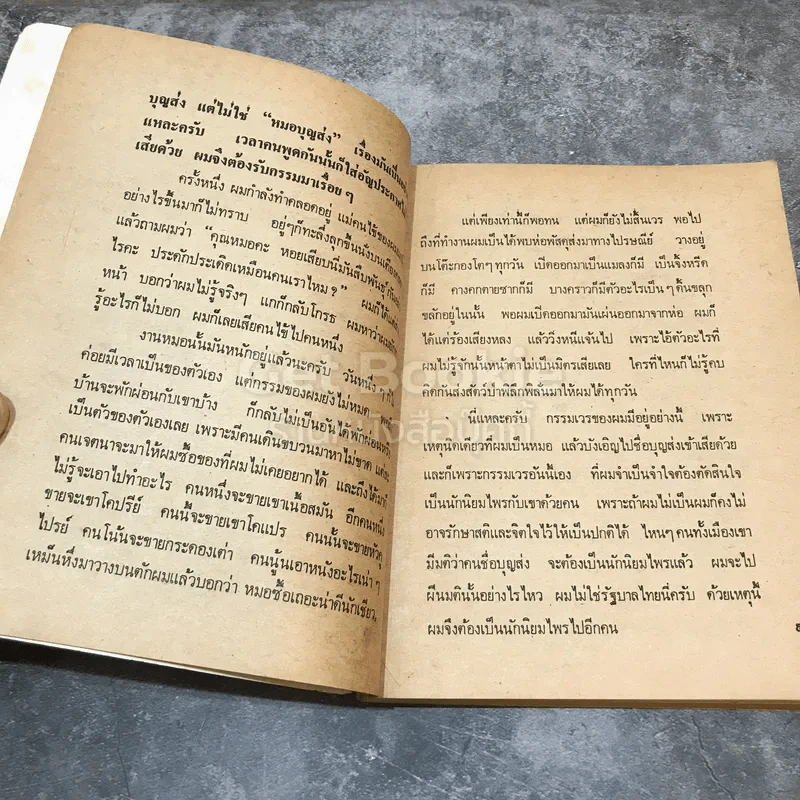 บุญส่ง แต่ไม่ใช่ “หมอบุญส่ง” เรื่องมันเป็น
แหละครับ เวลาคนพูดกันนั้นก็ใส่อัญประกาศ
เสียด้วย ผมจึงต้องรับกรรมมาเรื่อย ๆ
ครั้งหนึ่ง ผมกำลังทำคลอดอยู่ แม่คนไข้ของผม
อย่างไรขึ้นมาก็ไม่ทราบ อยู่ๆก็ทะลึ่งลุกขึ้นนั่งบนเตียง
แล้วถามผมว่า “คุณหมอคะ หอยเสียบนี่มันสืบพันธุ์กัน
ไรคะ ประดักประเดิดเหมือนคนเราไหม?” ผมก็ได้แต่
หน้า บอกว่าผมไม่รู้จริงๆ แกก็กลับโกรธ ผมหาว่าผม
รู้อะไรก็ไม่บอก ผมก็เลยเสียคนไข้ไปคนหนึ่ง
งานหมอนั้นมันหนักอยู่แล้วนะครับ วันหนึ่ง ๆ ก็ไม่
ค่อยมีเวลาเป็นของตัวเอง แต่กรรมของผมยังไม่หมด
บ้านจะพักผ่อนกับเขาบ้าง ก็กลับไม่เป็นอันได้พักผ่อน
เป็นตัวของตัวเองเลย เพราะมีคนเดินขบวนมาหาไม่ขาด
คนเจตนาจะมาให้ผมซื้อของที่ผมไม่เคยอยากได้ และถึงได้มาก็
ไม่รู้จะเอาไปทำอะไร คนหนึ่งจะขายเขาเนื้อสมัน อีกคนหนึ่ง
ขายจะเขาโคปรีย์ คนนี้จะขายเขาโคแปร คนนั้นจะขายหัว
ไปรย์ คนโน้นจะขายกระดองเต่า คนนู้นเอาหนังอะไรเน่า ๆ
เหม็นหึ่งมาวางบนตักผมแล้วบอกว่า หมอซื้อเถอะน่าดีนักเชียว,
แต่เพียงเท่านี้ก็พอทน แต่ผมก็ยังไม่สิ้นเวร พอไป
ถึงที่ทำงานผมเป็นได้พบห่อพัสดุส่งมาทางไปรษณีย์ วางอยู่
บนโต๊ะกองโตๆ ทุกวัน เปิดออกมาเป็นแมลงก็มี เป็นจิ้งหรีด
ก็มี คางคกตายซากก็มี บางคราวก็มีตัวอะไรเป็น ๆ ดิ้นขลุก
ขลักอยู่ในนั้น พอผมเปิดออกมามันเผ่นออกมาจากห่อ ผมก็
ได้แต่ร้องเสียงหลง แล้ววิ่งหนีแจ้นไป เพราะไอ้ตัวอะไรที่
ผมไม่รู้จักนั้นหน้าตาไม่เป็นมิตรเสียเลย ใครที่ไหนก็ไม่รู้คบ
คิดกันส่งสัตว์บ้าพิลึกพิลั่นมาให้ผมได้ทุกวัน
นี่แหละครับ กรรมเวรของผมมีอยู่อย่างนี้ เพราะ
เหตุนิดเดียวที่ผมเป็นหมอ แล้วบังเอิญไปชื่อบุญส่งเข้าเสียด้วย
และก็เพราะกรรมเวรอันนี้เอง ที่ผมจำเป็นจำใจต้องตัดสินใจ
เป็นนักนิยมไพรกับเขาด้วยคน เพราะถ้าผมไม่เป็นผมก็คงไม่
อาจรักษาสติและจิตใจไว้ให้เป็นปกติได้ ไหนๆ คนทั้งเมืองเขา
มีมติว่าคนชื่อบุญส่ง จะต้องเป็นนักนิยมไพรแล้ว ผมจะไป
ฝืนมตินั้นอย่างไรไหว ผมไม่ใช่รัฐบาลไทยนี่ครับ ด้วยเหตุนี้
ผมจึงต้องเป็นนักนิยมไพรไปอีกคน